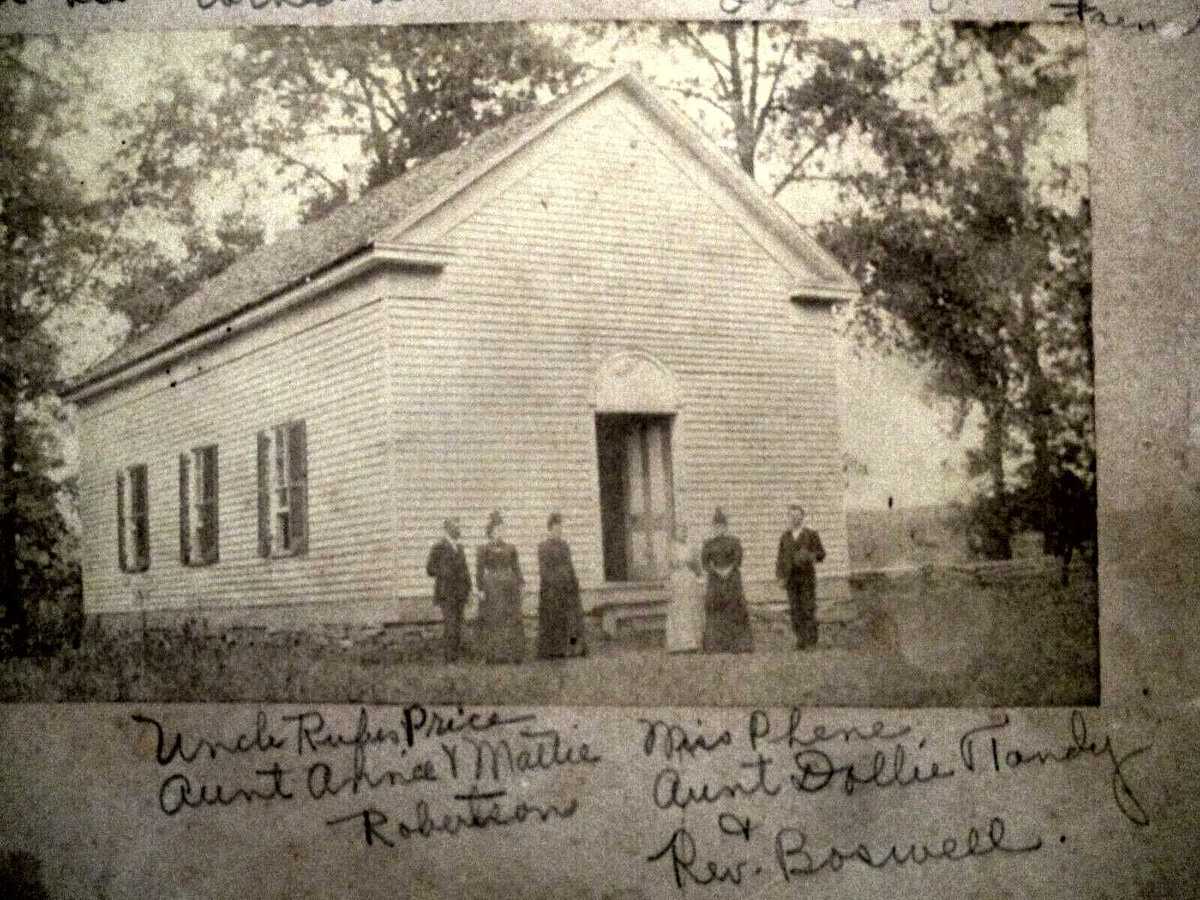 Uncle Rufus Price
Aunt Annie & Mattie
Robertson
Miss Phene
Aunt Dollie Tandy
&
Rev. Boswell.